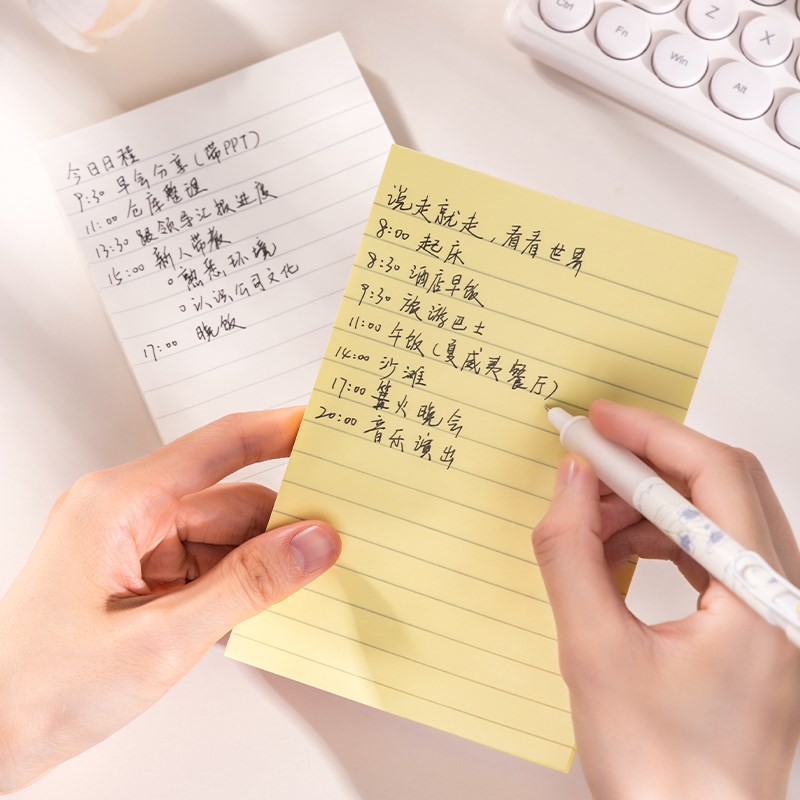 今日日程
9:30 早会分享(带PPT)
11:00 仓库整理
13:30 跟领导汇报进度
15:00 新人带教
o 熟悉环境
o 认识公司文化
17:00 晚饭
说走就走,看看世界
8:00 起床
8:30 酒店早饭
9:30 旅游巴士
11:00 午饭(夏威夷餐厅)
14:00 沙滩
17:00 篝火晚会
20:00 音乐演出
Ctrl
Fn
Win
Alt
Z
X